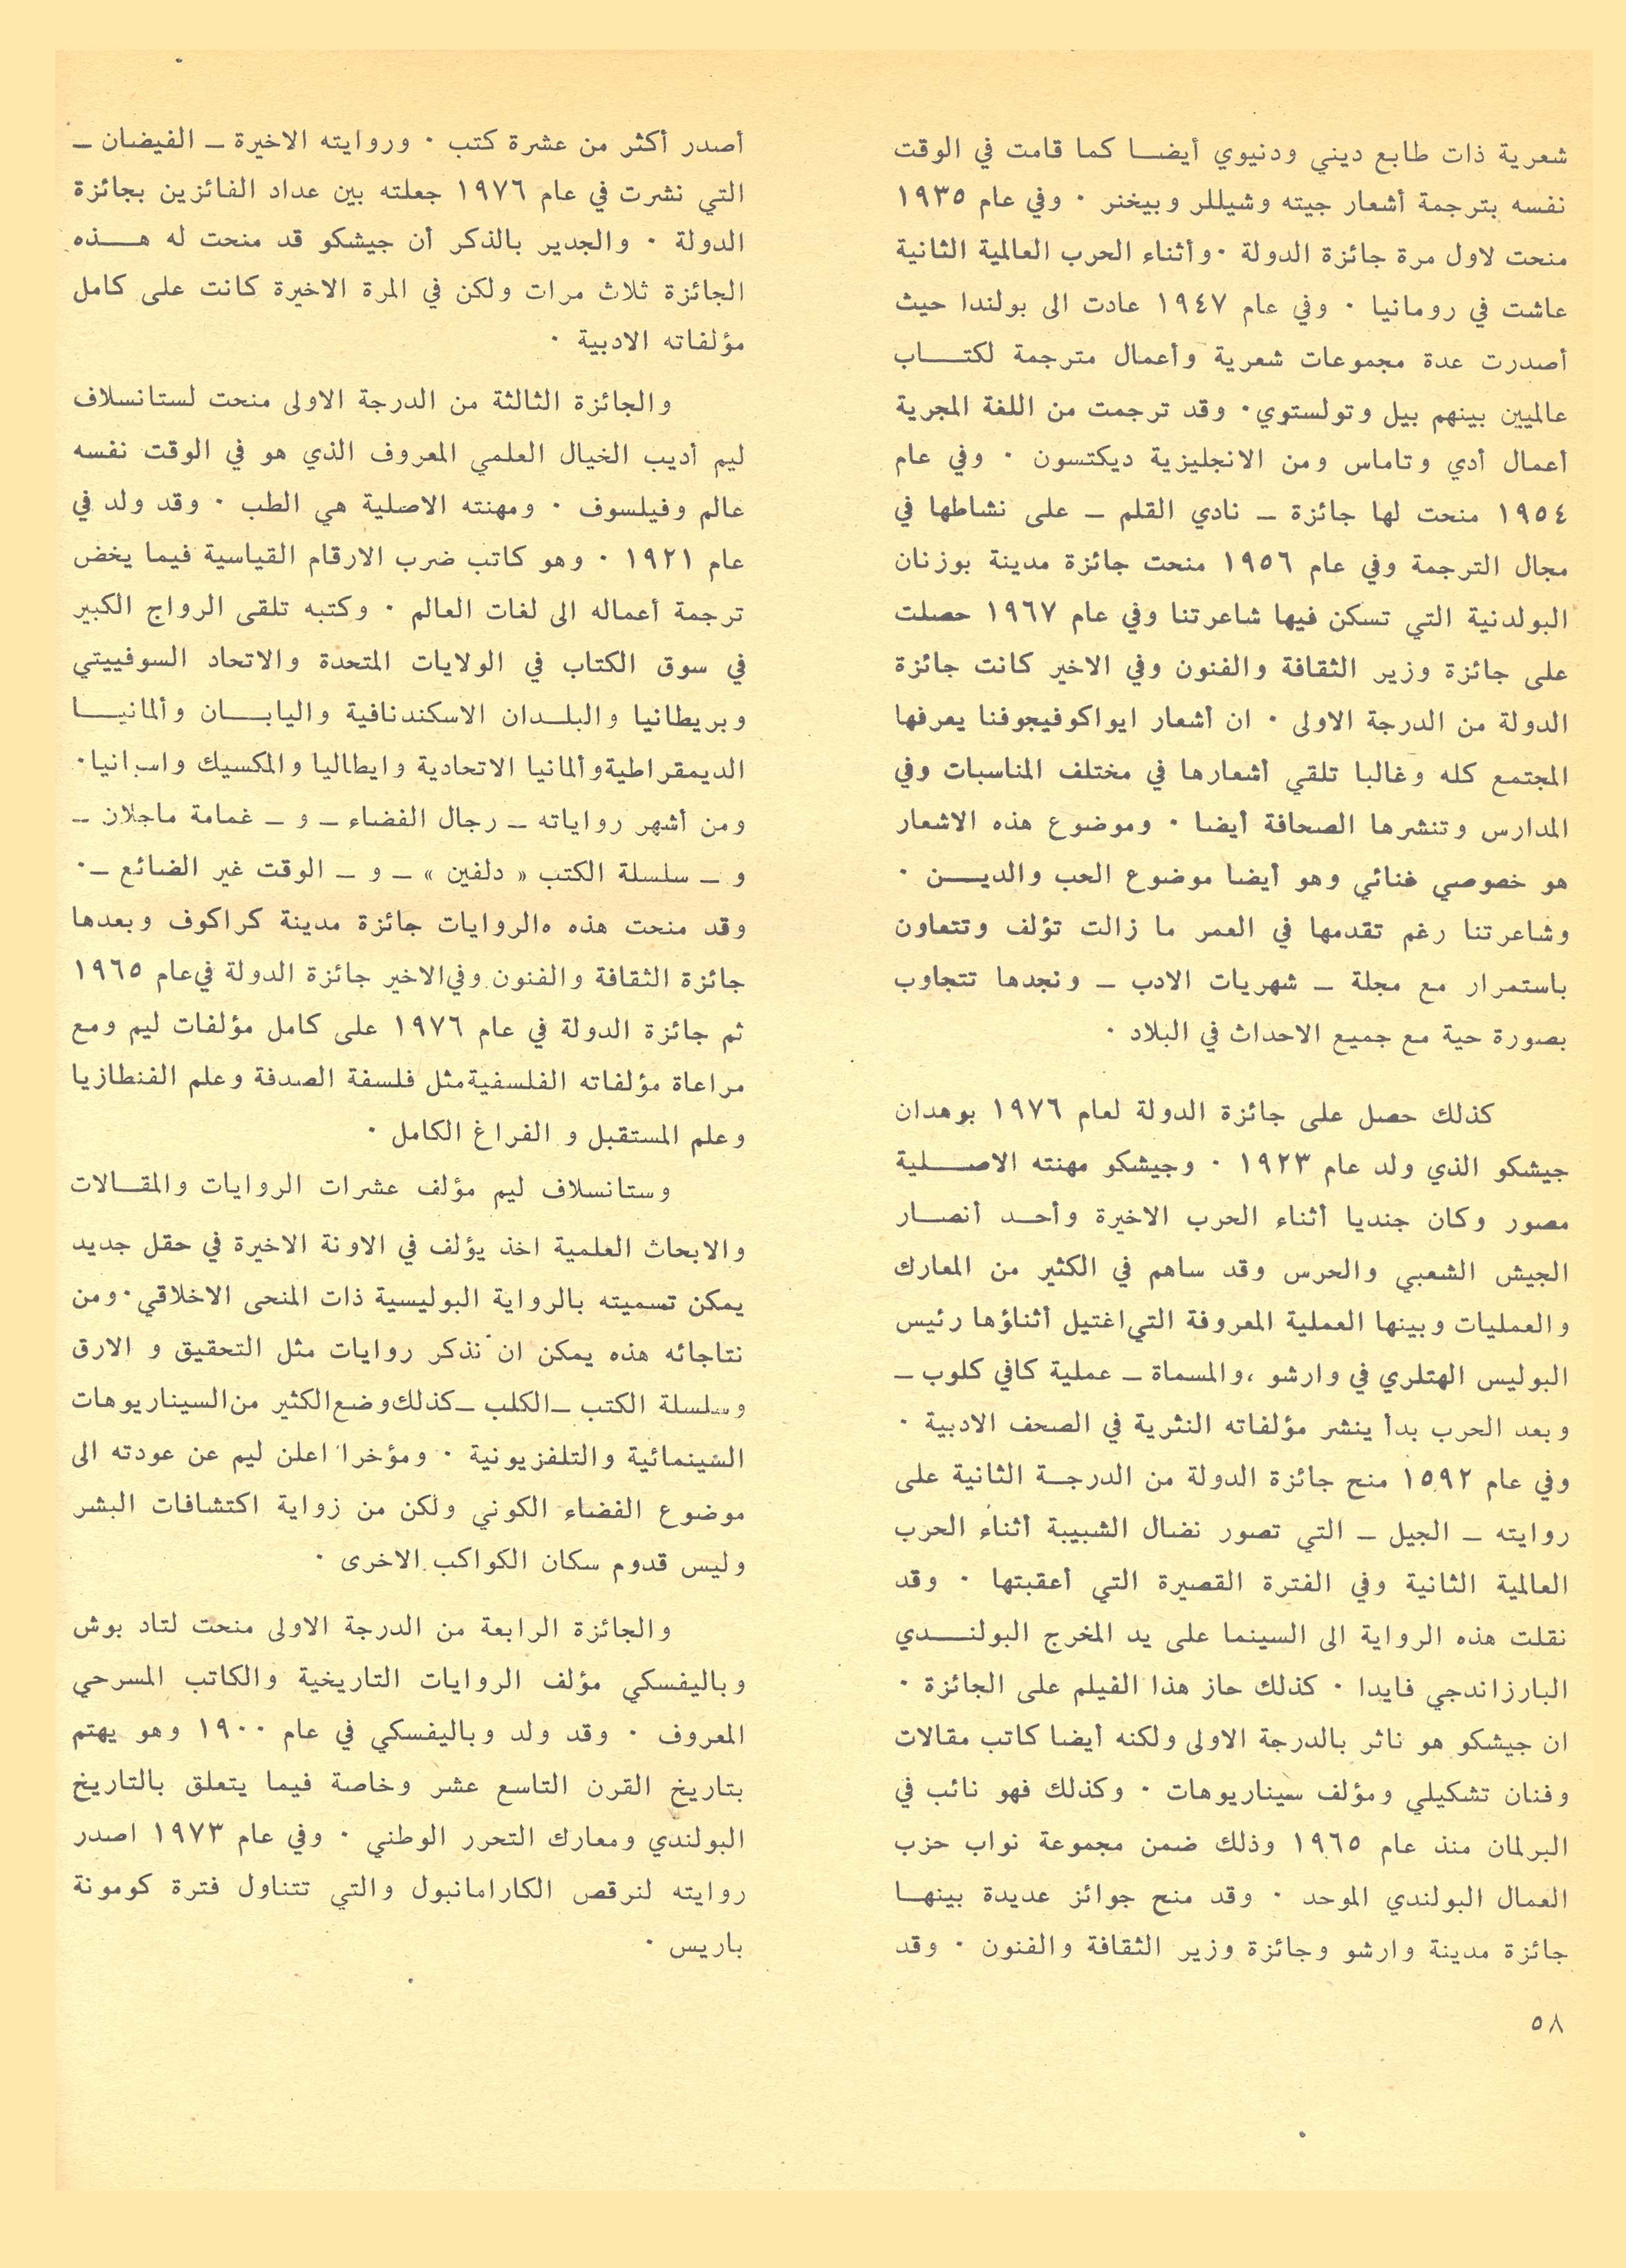 شعرية ذات طابع ديني ودنيوي أيضا كما قامت في الوقت
نفسه بترجمة أشعار جيته وشيللر وبيخنر ٠ وفي عام ١٩٣٥
منحت لاول مرة جائزة الدولة ٠ وأثناء الحرب العالمية الثانية
عاشت في رومانيا ٠ وفي عام ١٩٤٧ عادت الى بولندا حيث
أصدرت عدة مجموعات شعرية وأعمال مترجمة لكتاب
عالميين بينهم بيل وتولستوي٠ وقد ترجمت من اللغة المجرية
أعمال أدي وتاماس ومن الانجليزية ديكتسون ٠ وفي عام
١٩٥٤ منحت لها جائزة ــ نادي القلم ــ على نشاطها في
مجال الترجمة وفي عام ١٩٥٦ منحت جائزة مدينة بوزنان
البولدنية التي تسكن فيها شاعرتنا وفي عام ١٩٦٧ حصلت
على جائزة وزير الثقافة والفنون وفي الاخير كانت جائزة
الدولة من الدرجة الاولى ٠ ان أشعار ايواكوفيجوفنا يعرفها
المجتمع كله وغالبا تلقي أشعارها في مختلف المناسبات وفي
المدارس وتنشرها الصحافة أيضا ٠ وموضوع هذه الاشعار
هو خصوصي غنائي وهو أيضا موضوع الحب والدين ٠
وشاعرتنا رغم تقدمها في العمر ما زالت تؤلف وتتعاون
باستمرار مع مجلة ــ شهريات الادب ــ ونجدها تتجاوب
بصورة حية مع جميع الاحداث في البلاد ٠
كذلك حصل على جائزة الدولة لعام ١٩٧٦ بوهدان
جيشكو الذي ولد عام ١٩٢٣ ٠ وجيشكو مهنته الاصلية
مصور وكان جنديا أثناء الحرب الاخيرة وأحد أنصار
الجيش الشعبي والحرس وقد ساهم في الكثير من المعارك
والعمليات وبينها العملية المعروفة التي اغتيل أثناؤها رئيس
البوليس الهتلري في وارشو ،والمسماة ــ عملية كافي كلوب ــ
وبعد الحرب بدأ ينشر مؤلفاته النثرية في الصحف الادبية ٠
وفي عام ١٥٩٢ منح جائزة الدولة من الدرجة الثانية على
روايته ــ الجيل ــ التي تصور نضال الشبيبة أثناء الحرب
العالمية الثانية وفي الفترة القصيرة التي أعقبتها ٠ وقد
نقلت هذه الرواية الى السينما على يد المخرج البولندي
البارزاندجي فايدا ٠ كذلك حاز هذا الفيلم على الجائزة ٠
ان جيشكو هو ناثر بالدرجة الاولى ولكنه أيضا كاتب مقالات
وفنان تشكيلي ومؤلف سيناريوهات ٠ وكذلك فهو نائب في
البرلمان منذ عام ١٩٦٥ وذلك ضمن مجموعة نواب حزب
العمال البولندي الموحد ٠ وقد منح جوائز عديدة بينها
جائزة مدينة وارشو وجائزة وزير الثقافة والفنون ٠ وقد
أصدر أكثر من عشرة كتب ٠ وروايته الاخيرة ــ الفيضان ــ
التي نشرت في عام ١٩٧٦ جعلته بين عداد الفائزين بجائزة
الدولة ٠ والجدير بالذكر أن جيشكو قد منحت له هذه
الجائزة ثلاث مرات ولكن في المرة الاخيرة كانت على كامل
مؤلفاته الادبية ٠
والجائزة الثالثة من الدرجة الاولى منحت لستانسلاف
ليم أديب الخيال العلمي المعروف الذي هو في الوقت نفسه
عالم وفيلسوف ٠ ومهنته الاصلية هي الطب ٠ وقد ولد في
عام ١٩٢١ ٠ وهو كاتب ضرب الارقام القياسية فيما يخض
ترجمة أعماله الى لغات العالم ٠ وكتبه تلقى الرواج الكبير
في سوق الكتاب في الولايات المتحدة والاتحاد السوفييتي
وبريطانيا والبلدان الاسكندنافية واليابان وألمانيا
الديمقراطية وألمانيا الاتحادية وايطاليا والمكسيك واسبانيا٠
ومن أشهر رواياته ــ رجال الفضاء ــ و ــ غمامة ماجلان ــ
و ــ سلسلة الكتب « دلفين » ــ و ــ الوقت غير الضائع ــ ٠
وقد منحت هذه هالروايات جائزة مدينة كراكوف وبعدها
جائزة الثقافة والفنون وفي الاخير جائزة الدولة في عام ١٩٦٥
ثم جائزة الدولة في عام ١٩٧٦ على كامل مؤلفات ليم ومع
مراعاة مؤلفاته الفلسفية مثل فلسفة الصدفة وعلم الفنطازيا
وعلم المستقبل و الفراغ الكامل ٠
وستانسلاف ليم مؤلف عشرات الروايات والمقالات
والابحاث العلمية اخذ يؤلف في الاونة الاخيرة في حقل جديد
يمكن تسميته بالرواية البوليسية ذات المنحى الاخلاقي ٠ ومن
نتاجائه هذه يمكن ان نذكر روايات مثل التحقيق و الارق
وسلسلة الكتب ــ الكلب ــ كذلك وضع الكثير من السيناريوهات
السينمائية والتلفزيونية ٠ ومؤخرا اعلن ليم عن عودته الى
موضوع الفضاء الكوني ولكن من زواية اكتشافات البشر
وليس قدوم سكان الكواكب الاخرى ٠
والجائزة الرابعة من الدرجة الاولى منحت لتاد بوش
وباليفسكي مؤلف الروايات التاريخية والكاتب المسرحي
المعروف ٠ وقد ولد وباليفسكي في عام ١٩٠٠ وهو يهتم
بتاريخ القرن التاسع عشر وخاصة فيما يتعلق بالتاريخ
البولندي ومعارك التحرر الوطني ٠ وفي عام ١٩٧٣ اصدر
روايته لنرقص الكارامانبول والتي تتناول فترة كومونة
باريس ٠
٥٨